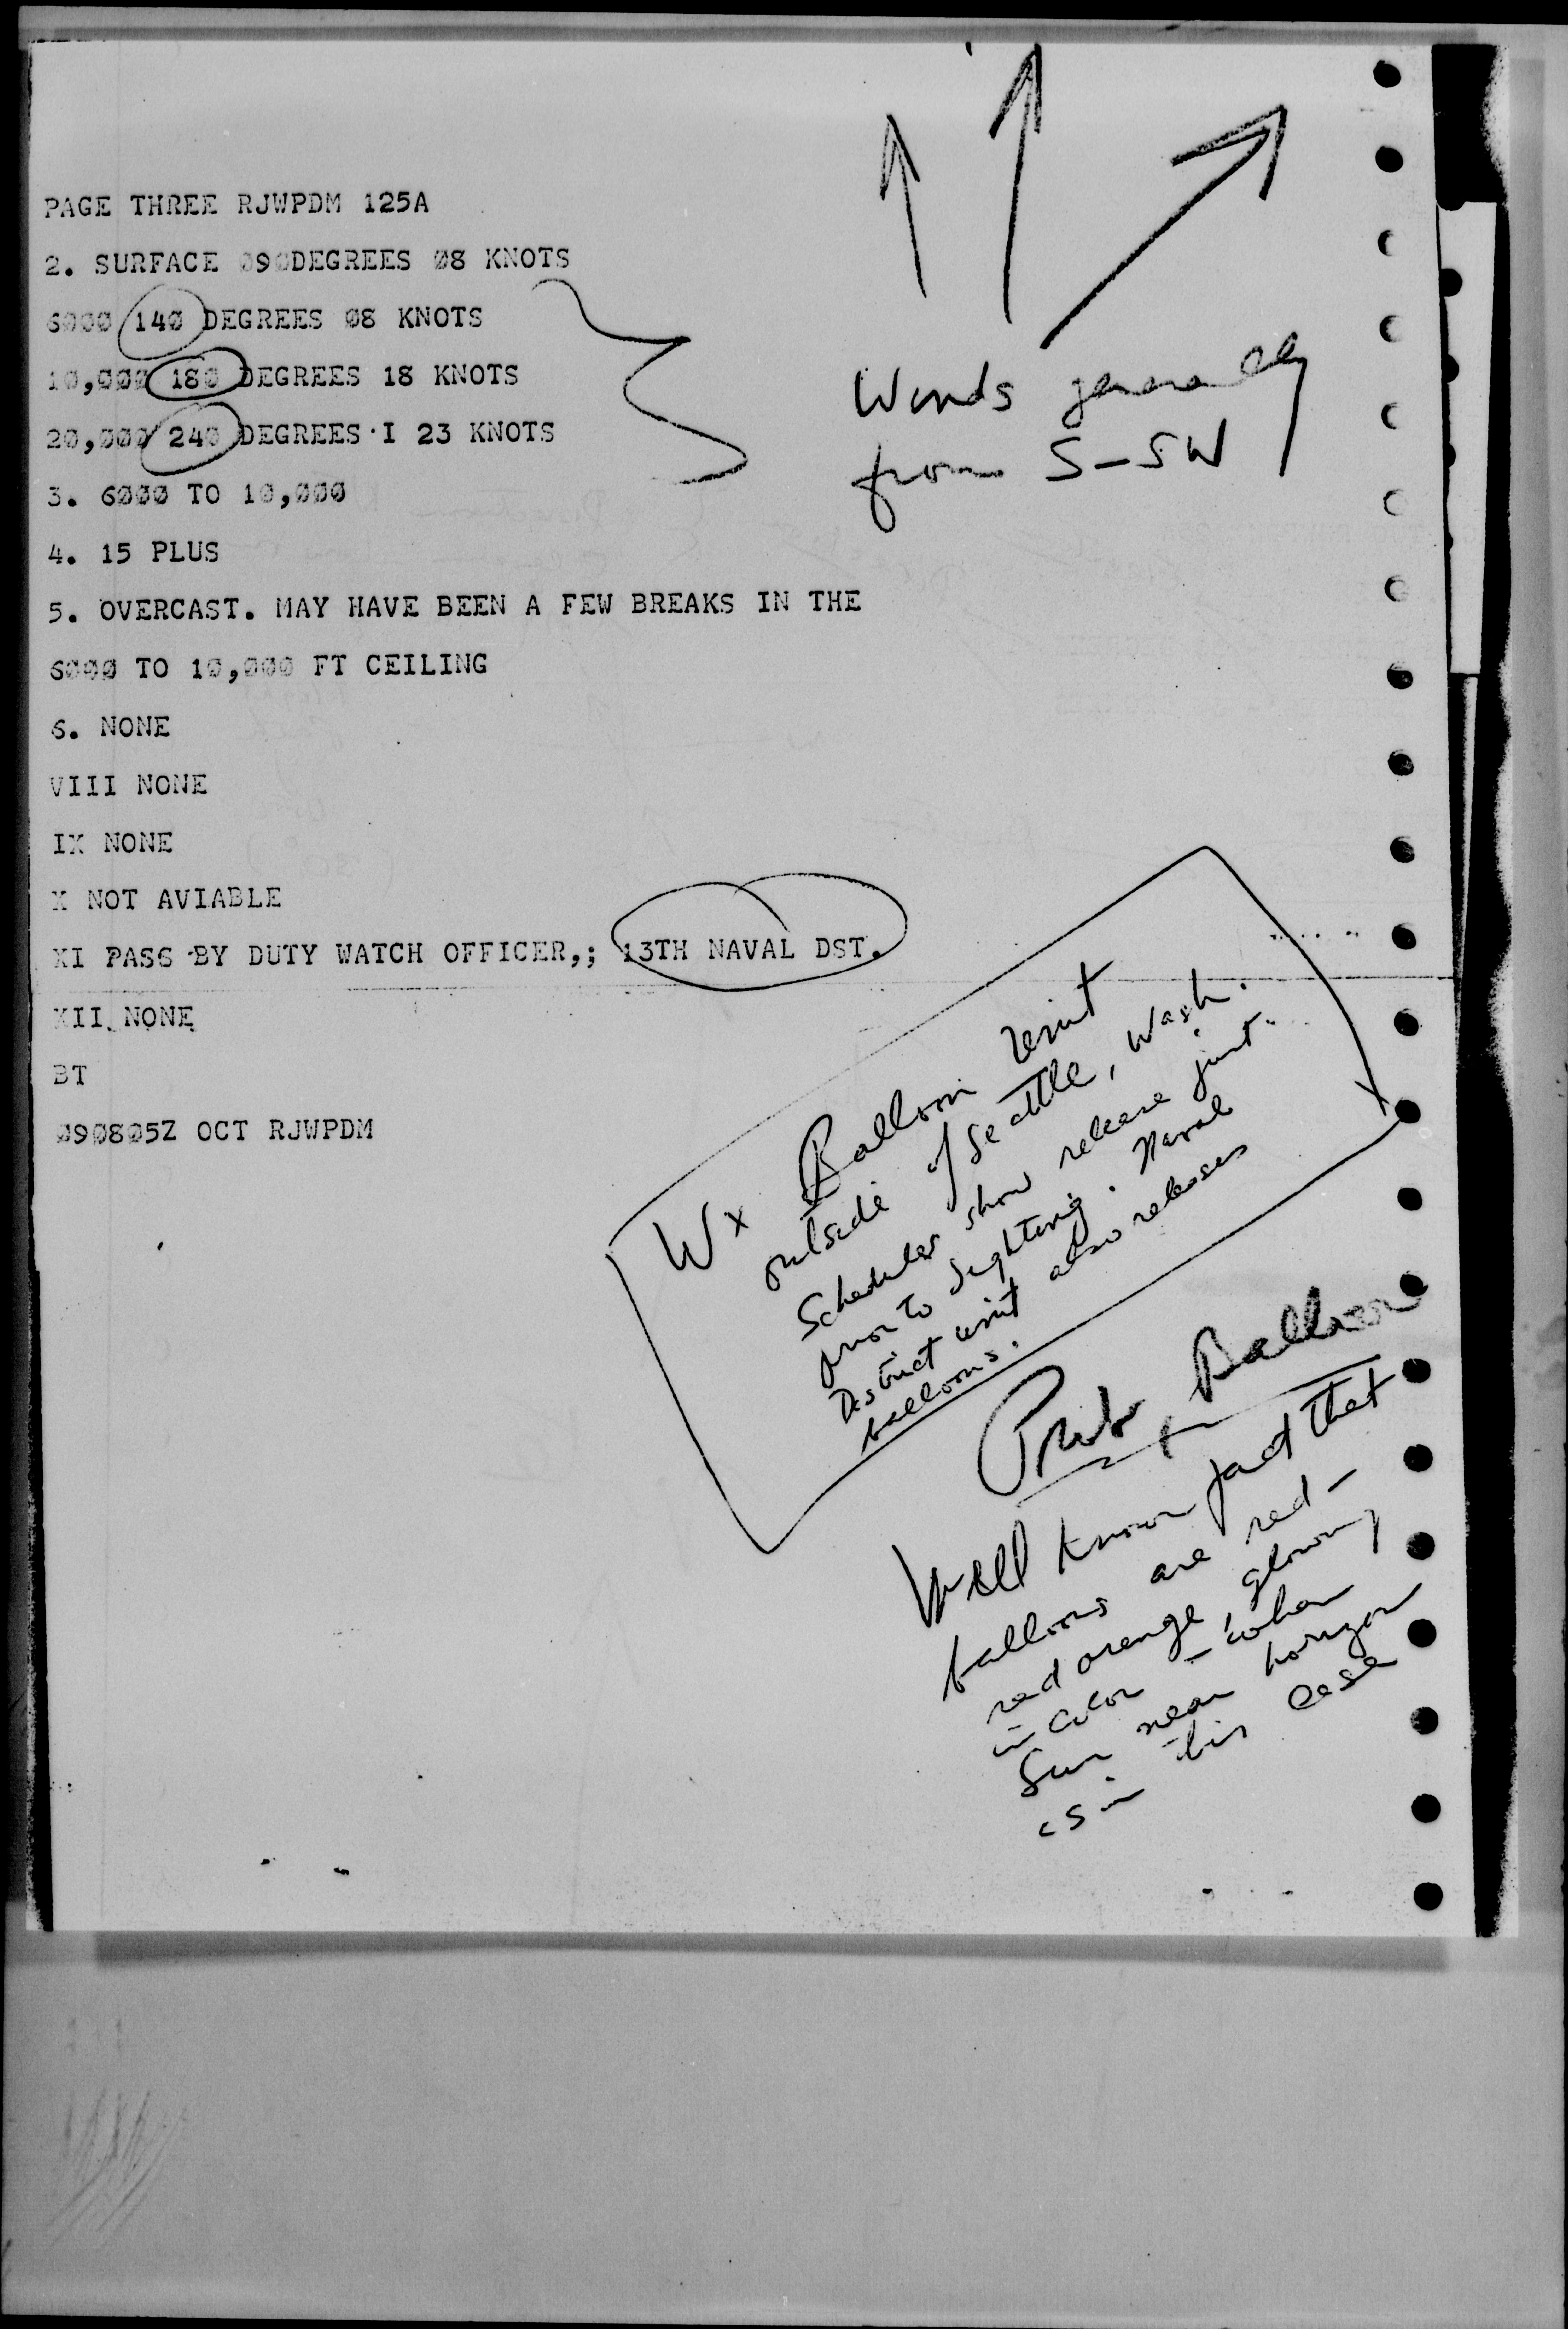 PAGE THREE RJWPDM 125A
2. SURFACE 090DEGREES 08 KNOTS
6000 140 DEGREES 08 KNOTS
10,000 180 DEGREES 18 KNOTS
20,000 240 DEGREES I 23 KNOTS
Winds generally
from S-SW
3. 6000 TO 10,000
4. 15 PLUS
5. OVERCAST. MAY HAVE BEEN A FEW BREAKS IN THE
6000 TO 10,000 FT CEILING
6. NONE
VIII NONE
IX NONE
X NOT AVIABLE
XI PASS BY DUTY WATCH OFFICER,; 13TH NAVAL DST.
XII NONE
BT
090805Z OCT RJWPDM
Wx Balloon Unit
outside of Seattle, Wash.
Schedules show release just
prior to sighting. Naval
District unit also releases
balloons.
Prob Balloon
Well known fact that
balloons are red-
red orange, glowing
in color - when
Sun near horizon
as in this case